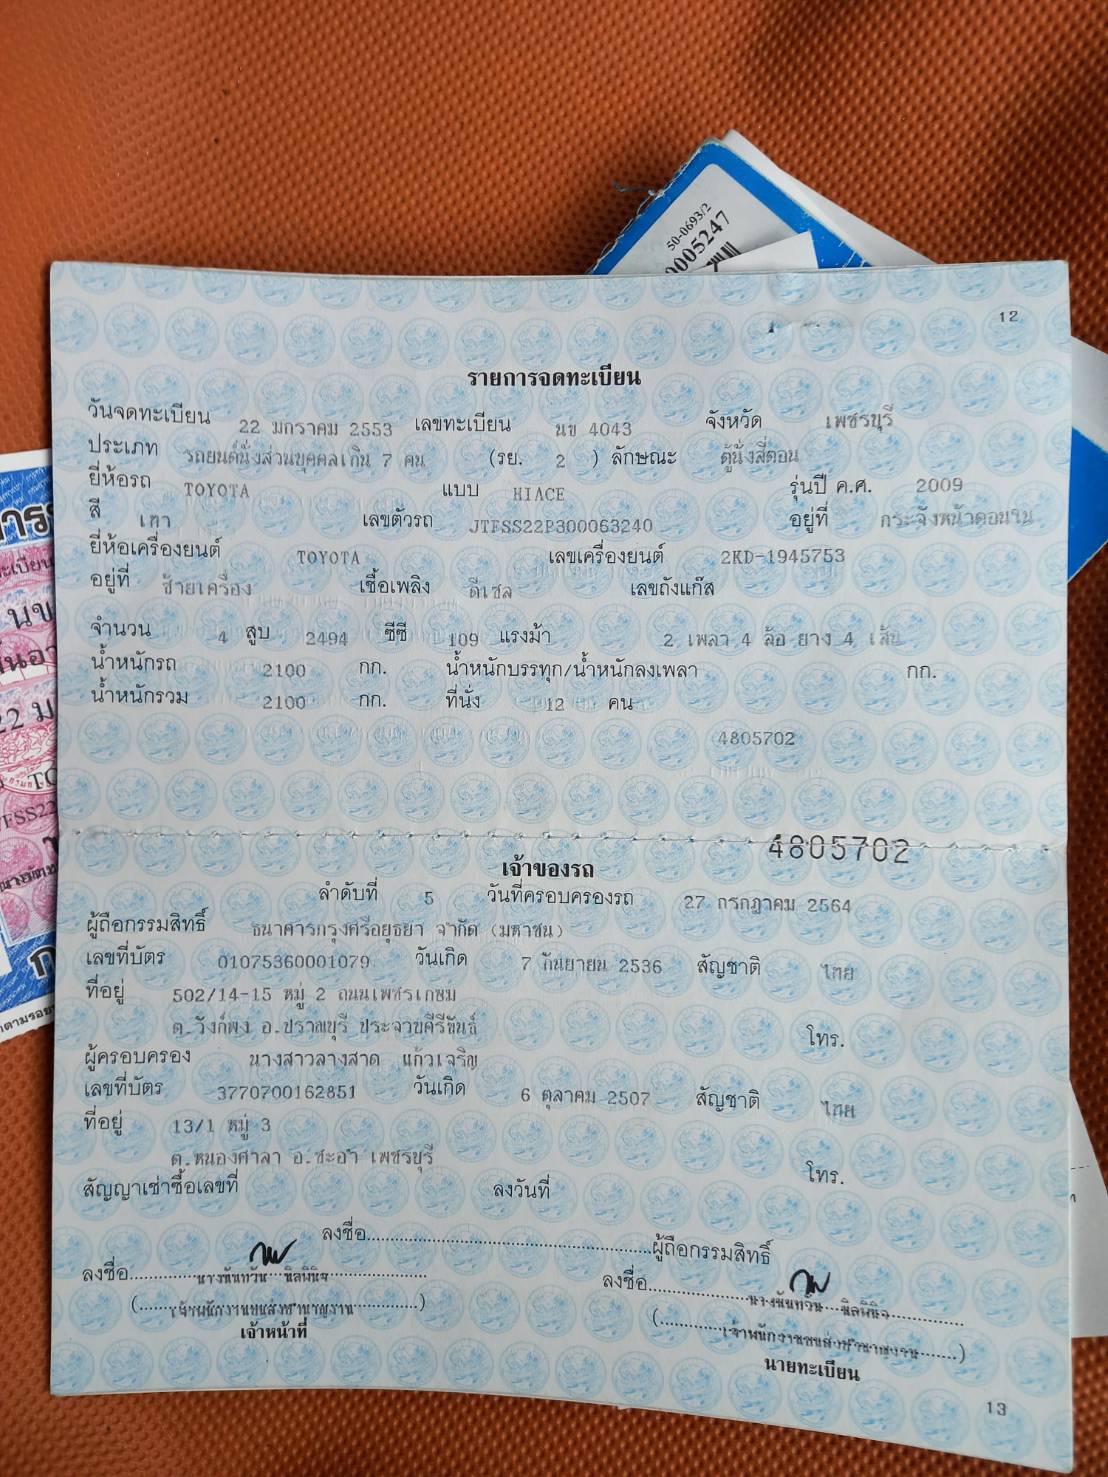 50-0693/2
0005247
12
รายการจดทะเบียน
วันจดทะเบียน 22 มกราคม 2553 เลขทะเบียน นข 4043 จังหวัด เพชรบุรี
ประเภท รถยนต์นั่งส่วนบุคคลเกิน 7 คน (รย. 2 ) ลักษณะ ตู้นั่งสี่ตอน
ยี่ห้อรถ TOYOTA แบบ HIACE รุ่นปี ค.ศ. 2009
สี เทา เลขตัวรถ JTFSS22P300063240 อยู่ที่ กระจังหน้าตอนใน
ยี่ห้อเครื่องยนต์ TOYOTA เลขเครื่องยนต์ 2KD-1945753
อยู่ที่ ซ้ายเครื่อง เชื้อเพลิง ดีเซล เลขถังแก๊ส
จำนวน 4 สูบ 2494 ซีซี 109 แรงม้า 2 เพลา 4 ล้อ ยาง 4 เส้น
น้ำหนักรถ 2100 กก. น้ำหนักบรรทุก/น้ำหนักลงเพลา กก.
น้ำหนักรวม 2100 กก. ที่นั่ง 12 คน
4805702
4805702
เจ้าของรถ
ลำดับที่ 5 วันที่ครอบครองรถ 27 กรกฎาคม 2564
ผู้ถือกรรมสิทธิ์ ธนาคารกรุงศรีอยุธยา จำกัด (มหาชน)
เลขที่บัตร 01075360001079 วันเกิด 7 กันยายน 2536 สัญชาติ ไทย
ที่อยู่ 502/14-15 หมู่ 2 ถนนเพชรเกษม
ต.วังก์พง อ.ปราณบุรี ประจวบคีรีขันธ์ โทร.
ผู้ครอบครอง นางสาวลางสาด แก้วเจริญ
เลขที่บัตร 3770700162851 วันเกิด 6 ตุลาคม 2507 สัญชาติ ไทย
ที่อยู่ 13/1 หมู่ 3
ต.หนองศาลา อ.ชะอำ เพชรบุรี โทร.
สัญญาเช่าซื้อเลขที่ ลงวันที่
ลงชื่อ ผู้ถือกรรมสิทธิ์
ลงชื่อ นางนันทวัน นิลพินิจ ลงชื่อ นางนันทวัน นิลพินิจ
(เจ้าพนักงานขนส่งชำนาญงาน) (เจ้าพนักงานขนส่งชำนาญงาน)
เจ้าหน้าที่ นายทะเบียน
13